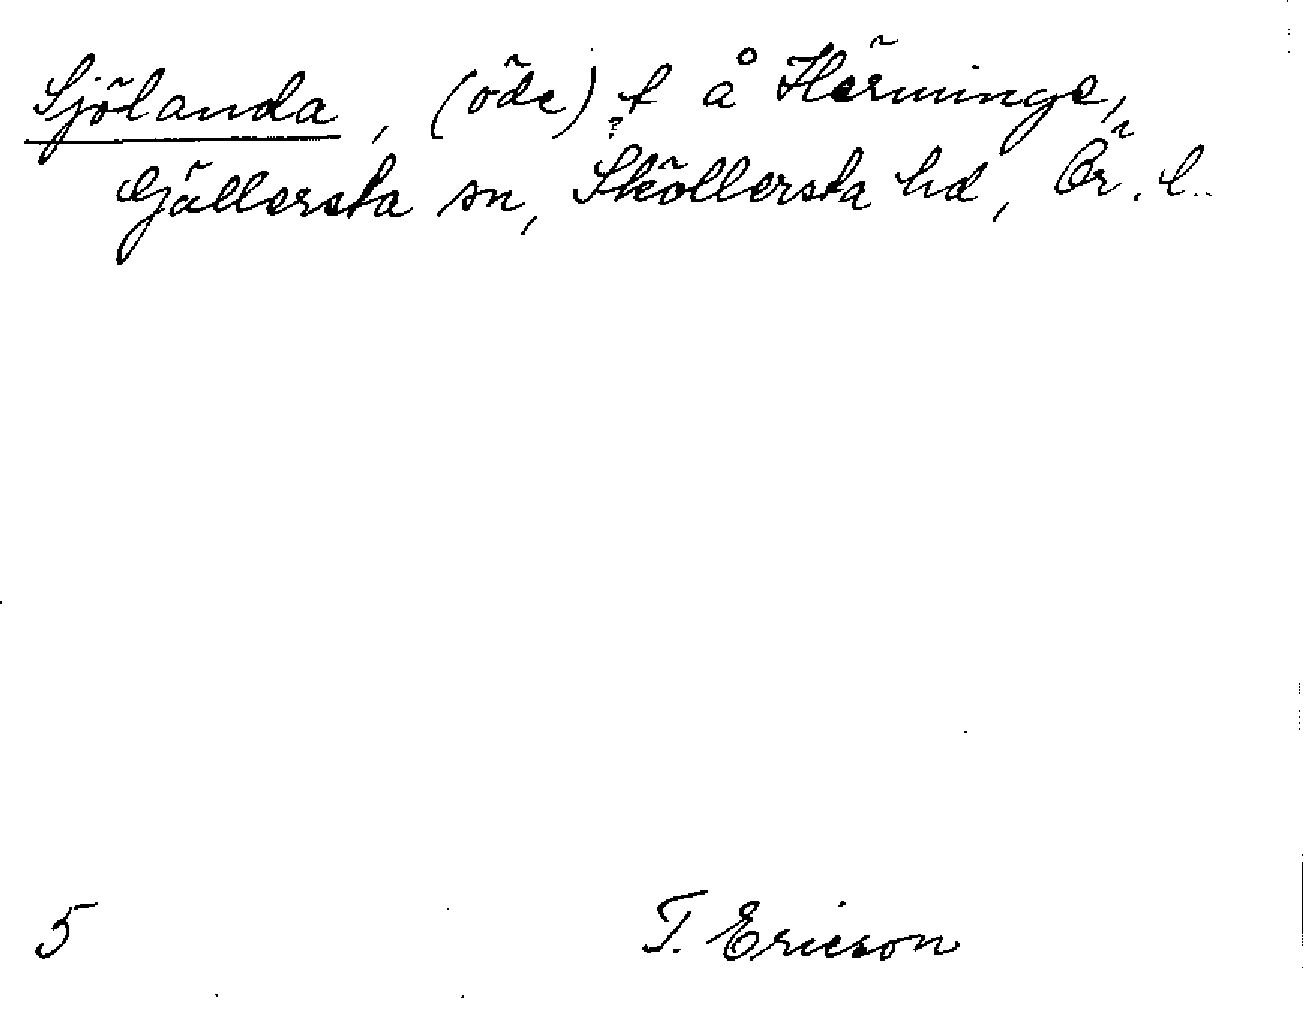 Sjölanda, (öde) t å Härminge,
?
Gällersta sn, Sköllersta hd, Ör. l.
5 T. Ericson